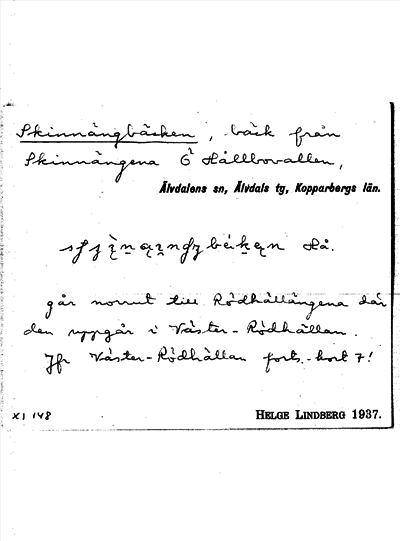 Skinnängbäcken, bäck från
Skinnängena G Hållbovallen,
Älvdalens sn, Älvdals tg, Kopparbergs län.
Hå.
går norrut till Rödhällängena där
den uppgår i Väster-Rödhällan.
Jfr Väster-Rödhällan forts.-kort 7!
XI 148
HELGE LINDBERG 1937.